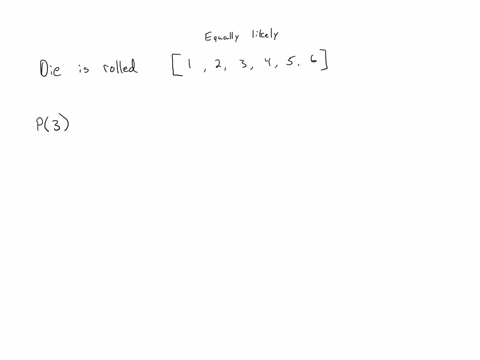 Equally likely
Die is rolled [1, 2, 3, 4, 5, 6]
P(3)